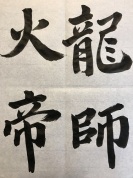 龍師
火帝